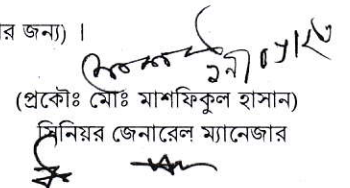 র জন্য) ।
(প্রকৌঃ মোঃ মাশফিকুল হাসান)
সিনিয়র জেনারেল ম্যানেজার